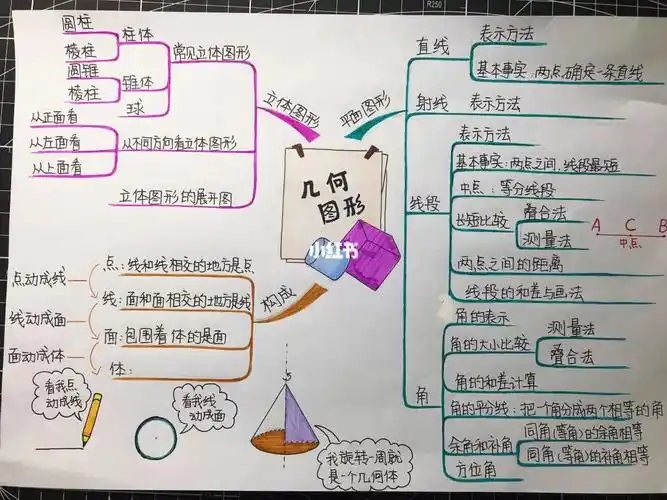 R250
几何
图形
小红书
立体图形
常见立体图形
柱体
圆柱
棱柱
锥体
圆锥
棱柱
球
从不同方向看立体图形
从正面看
从左面看
从上面看
立体图形的展开图
平面图形
直线
表示方法
基本事实:两点确定一条直线
射线
表示方法
线段
表示方法
基本事实:两点之间,线段最短
中点:等分线段
长短比较
叠合法
测量法
A C B
中点
两点之间的距离
线段的和差与画法
角
角的表示
角的大小比较
测量法
叠合法
角的和差计算
角的平分线:把一个角分成两个相等的角
余角和补角
同角(等角)的余角相等
同角(等角)的补角相等
方位角
构成
点:线和线相交的地方是点
线:面和面相交的地方是线
面:包围着体的是面
体:
点动成线
线动成面
面动成体
看我点
动成线
看我线
动成面
我旋转一周就
是一个几何体